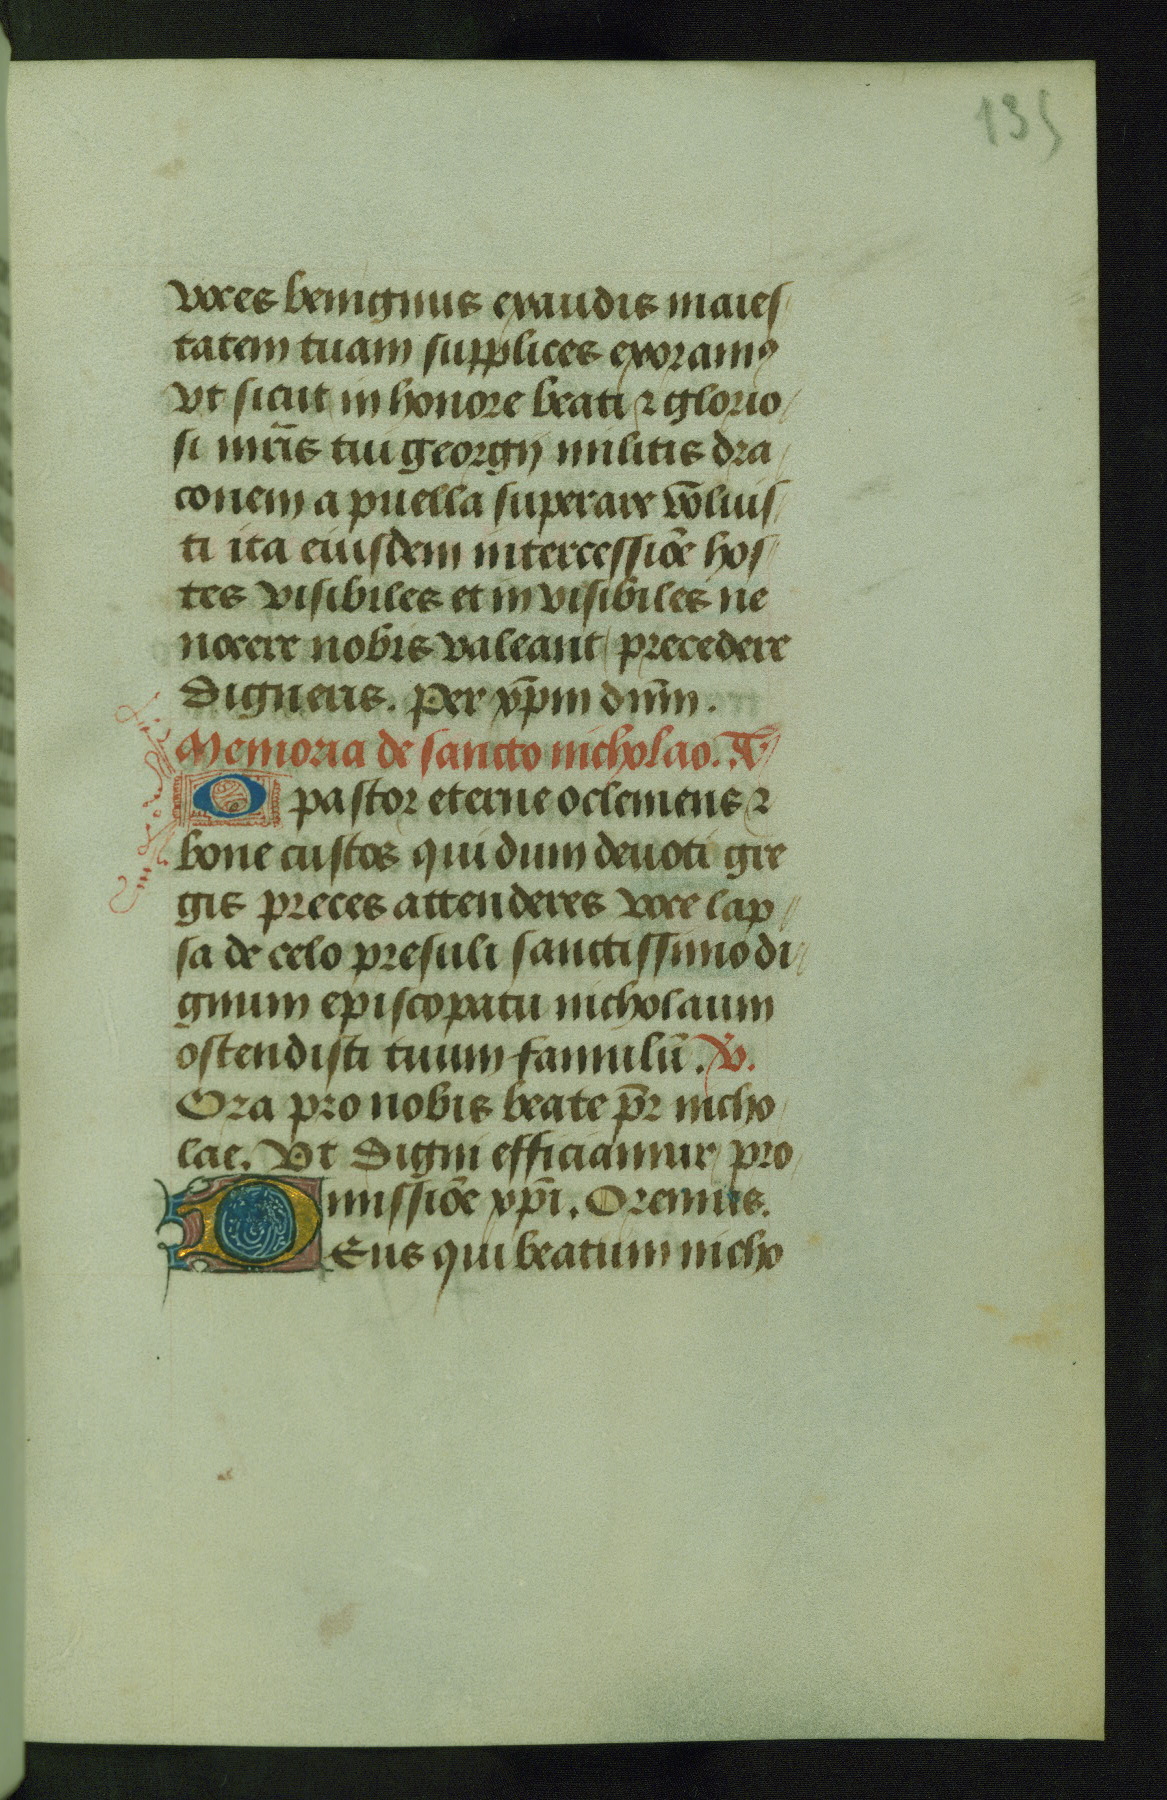 135
voces benignus exaudis maies
tatem tuam supplices exoramꝰ
vt sicut in honore beati ⁊ glorio
si mr̃is tui georgij militis dra
conem a puella superare volũis
ti ita eiusdem intercessiõe hos
tes visibiles et in visibiles ne
nocere nobis valeant precedere
digneris. Per xp̄m dñm.
Memoria de sancto nicholao. A͞.
O pastor eterne o clemens ⁊
bone custos qui dum deuoti gre
gis preces attenderes voce lap
sa de celo presuli sanctissimo di
gnum episcopatu nicholaum
ostendisti tuum famulũ. V̇.
Ora pro nobis beate pr̄ nicho
lae. Vt digni efficiamur pro
missiõe xp̄i. Oremus.
DEus qui beatum nicho